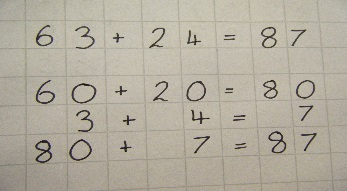 63 + 24 = 87
60 + 20 = 80
3 + 4 = 7
80 + 7 = 87